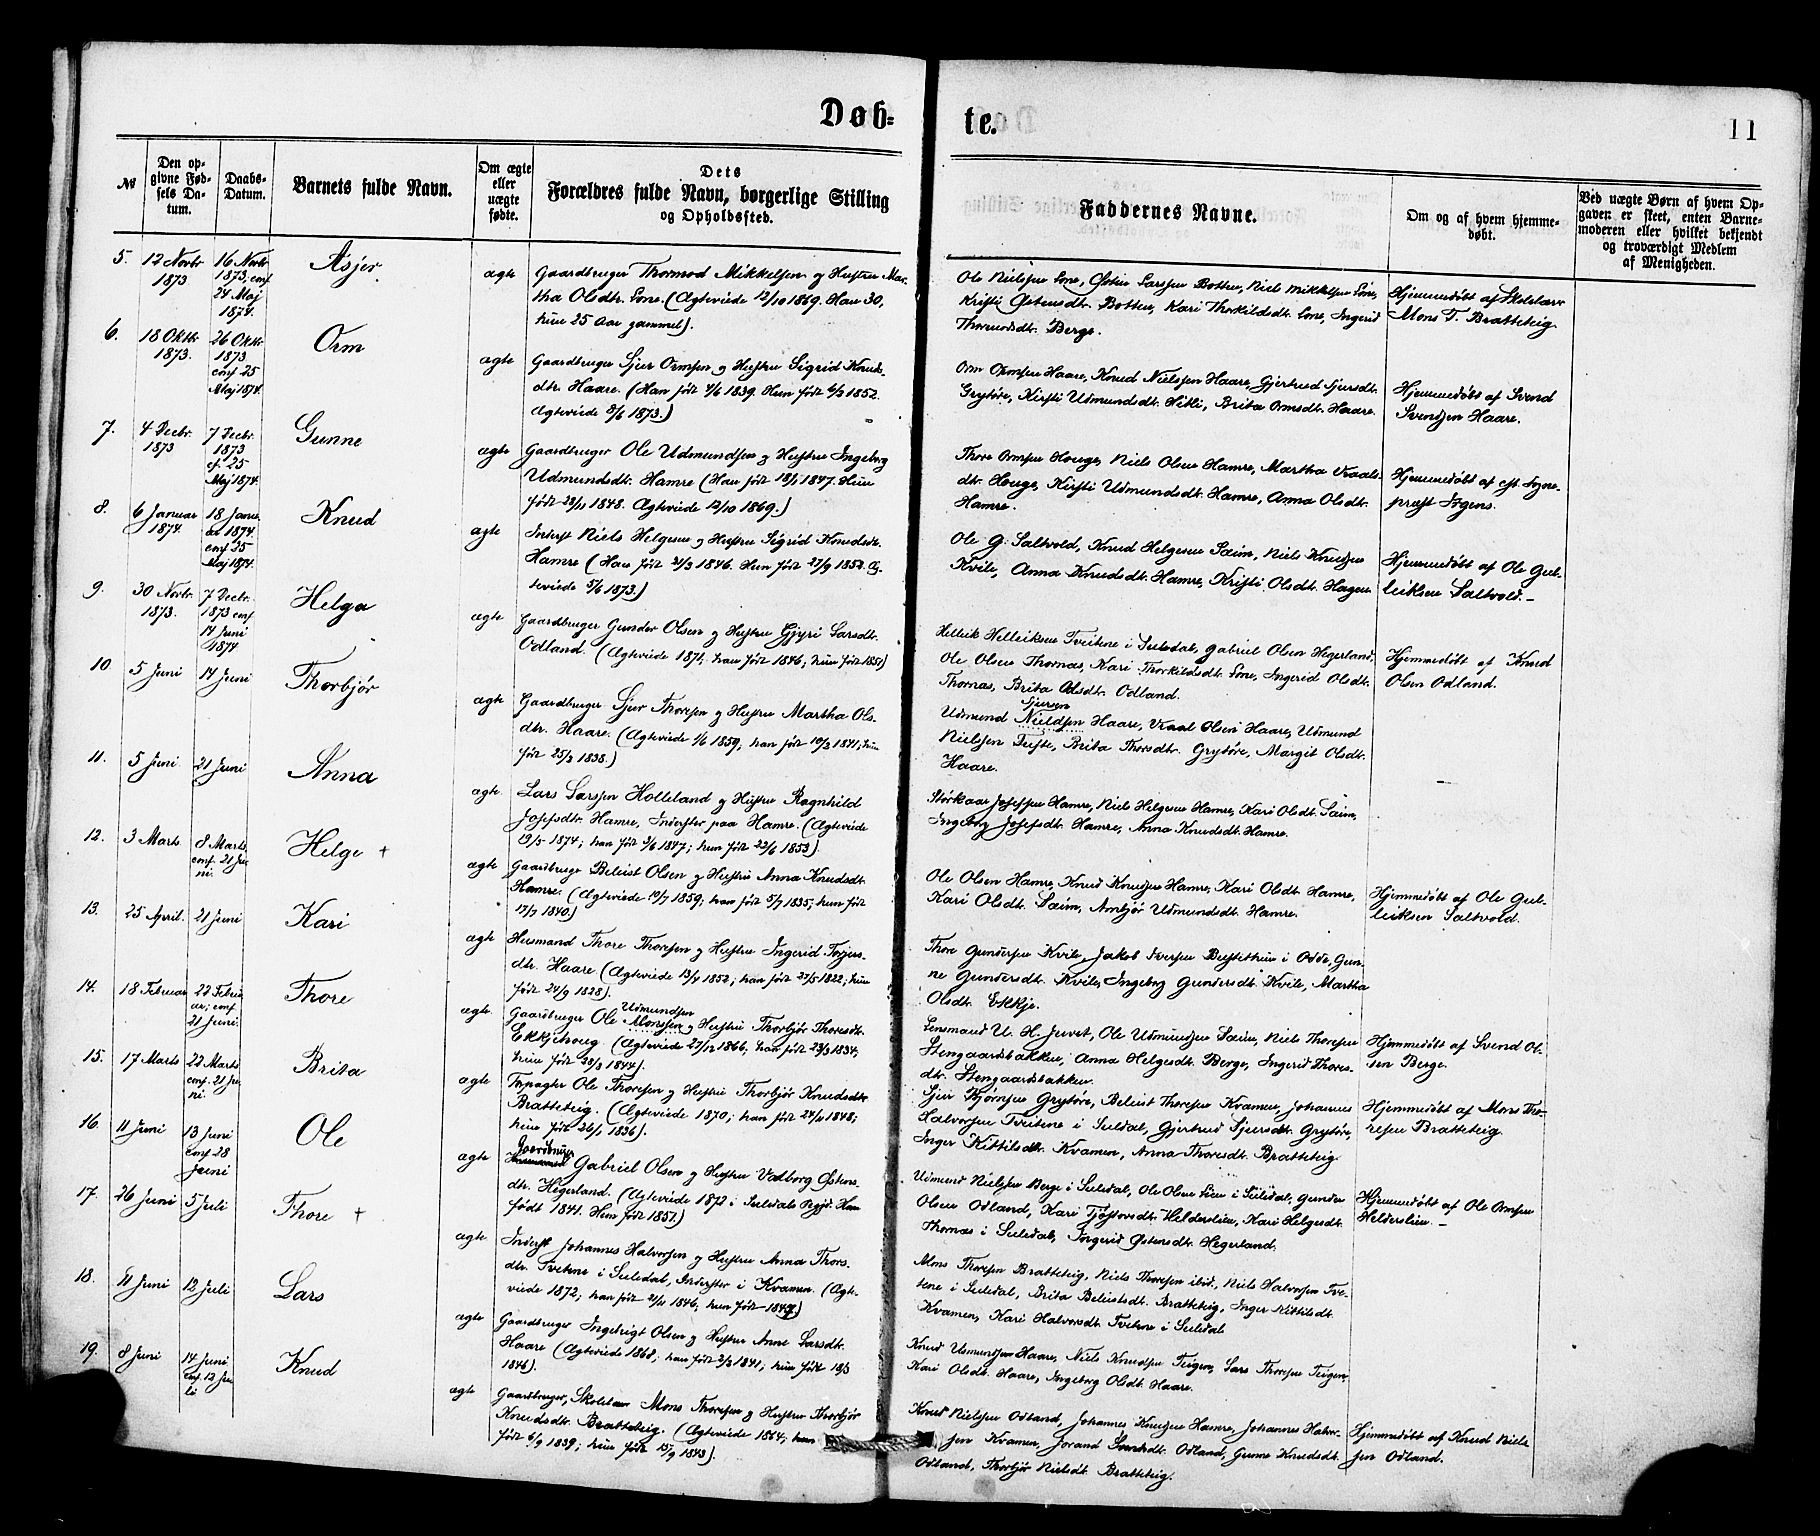 Døb=
te.
11
№
Den op-
givne Fød-
sels Da-
tum.
Daabs-
Datum.
Barnets fulde Navn.
Om ægte
eller
uægte
fødte.
Dets
Forældres fulde Navn, borgerlige Stilling
og Opholdssted.
Faddernes Navne.
Om og af hvem hjemme-
døbt.
Ved uægte Børn af hvem Op-
gaven er skeet, enten Barne-
moderen eller hvilket bekjendt
og troværdigt Medlem
af Menigheden.
5. 12 Novbr 1873
16 Novbr
1873, conf.
24 Maj
1874.
Asjer
ægte
Gaardbruger Thormod Mikkelsen og Hustru Mar-
tha Olsdtr. Lone. (Ægteviede 12/10 1869. Han 30,
hun 25 Aar gammel).
Ole Nielsen Lone, Østen Larssen Botten, Niels Mikkelsen Lone,
Kristi Østensdt. Botten, Kari Thorkildsdt. Lone, Ingerid
Thormodsdt. Berge.
Hjemmedøbt af Skolelærer
Mons T. Bratteteig.
6. 18 Oktbr 1873.
26 Oktbr
1873
conf 25
Maj 1874.
Orm
ægte
Gaardbruger Sjur Ormsen og Hustru Sigrid Knuds-
dtr. Haare. (Han født 4/6 1839. Hun født 6/3 1852.
Ægteviede 8/6 1873.)
Orm Ormsen Haare, Knud Nielsen Haare, Gjertrud Sjursdt.
Grytøre, Kirsti Udmundsdt. Hetli, Brita Ormsdt. Haare.
Hjemmedøbt af Svend
Svendsen Haare.
7. 4 Decbr. 1873
7 Decbr.
1873
cf. 25
Maj 1874.
Gunne
ægte
Gaardbruger Ole Udmundsen og Hustru Ingeborg
Udmundsdt. Hamre (Han født 18/1 1847. Hun
født 28/11 1848. Ægteviede 12/10 1869.)
Thore Ormsen Houge, Niels Olsen Hamre, Martha Vraals-
dtr. Houge, Kirsti Udmundsdt. Hamre, Anna Olsdt.
Hamre.
Hjemmedøbt af cst. Sogne-
præst Sogens.
8. 6 Januar 1874.
18 Janu-
ar 1874.
conf 25
Maj 1874.
Knud
ægte
Inderst Niels Helgesen og Hustru Sigrid Knudsdt.
Hamre (Han født 24/3 1846. Hun født 27/9 1852. Æg-
teviede 5/6 1873.)
Ole G. Saltvold, Knud Helgesen Saim, Niels Knudsen
Kvile, Anna Knudsdt. Hamre, Kristi Olsdt. Hagen
Hjemmedøbt af Ole Gul-
leiksen Saltvold.-
9. 30 Novbr. 1873.
7 Decbr.
1873 conf.
14 Juni
1874
Helga
ægte
Gaardbruger Gunder Olsen og Hustru Gjyri Larsdt.
Odland. (Ægteviede 1871, han født 1846, hun født 1851)
Helleik Helleiksen Tveitene i Suledal, Gabriel Olsen Hegerland,
Ole Olsen Thornæs, Kari Thorkildsdt. Lone, Ingerid Olsdt.
Thornæs, Brita Olsdt. Odland.
Hjemmedøbt af Knud
Olsen Odland.
10 5 Juni
14 Juni
Thorbjør
ægte
Gaardbruger Sjur Thoresen og Hustru Martha Ols-
dtr. Haare. (Ægteviede 1/6 1859, han født 19/3 1841, hun
født 25/3 1838.)
Sjursen
Udmund Nielssen Haare, Vraal Olsen Haare, Udmund
Nielsen Tufte, Brita Thorsdtr. Grytøre, Margit Olsdt.
Haare.
11. 5 Juni
21 Juni
Anna
ægte
Lars Larssen Holleland og Hustru Ragnhild
Josefsdtr. Hamre, Inderster paa Hamre. (Ægteviede
19/5 1874; han født 3/6 1847; hun født 22/6 1853).
Størkaar Josefsen Hamre, Niels Helgesen Hamre, Kari Olsdt. Saim,
Ingeborg Josefsdt. Hamre, Anna Knudsdt. Hamre.
12. 3 Marts
8 Marts,
conf. 21 Ju-
ni.
Helge +
ægte
Gaardbruger Beleist Olsen og Hustru Anna Knudsdt.
Hamre. (Ægteviede 19/7 1859; han født 5/7 1835, hun født
17/7 1840.)
Ole Olsen Hamre, Knud Knudsen Hamre, Kari Olsdt. Hamre,
Kari Olsdt. Saim, Anbjør Udmundsdt. Hamre.
Hjemmedøbt af Ole Gul-
leiksen Saltvold.
13. 25 April.
21 Juni
Kari
ægte
Husmand Thore Thoresen og Hustru Ingerid Torjers-
dt. Haare (Ægteviede 13/4 1852; han født 27/5 1822, hun
født 24/9 1828).
Thore Gundersen Kvile, Jakob Iversen Bustethun i Odde, Gun-
ne Gundersdt. Kvile, Ingeborg Gundersdt. Kvile, Martha
Olsdt. Ekkje.
14. 18 Februar
22 Febru-
ar; conf.
21 Juni.
Thore
ægte.
Udmundsen
Gaardbruger Ole Monssen og Hustru Thorbjør Thoresdt.
Ekkjehoug. (Ægteviede 27/12 1866, han født 23/3 1834,
hun født 28/3 1844).
Lensmand U. H. Juvet, Ole Udmundsen Saim, Niels Thoresen
Stengaardsbakken, Anna Helgesdt. Berge, Ingerid Thores-
dt. Stengaardsbakken.
Hjemmedøbt af Svend Ol-
sen Berge.
15. 17 Marts
22 Marts
conf. 21 Ju-
ni.
Brita
ægte
Forpagter Ole Thoresen og Hustru Thorbjør Knudsdtr.
Bratteteig. (Ægteviede 1870; han født 24/11 1848;
hun født 26/1 1836).
Sjur Bjørnsen Grytøre, Beleist Thoresen Kvamen, Johannes
Halvorsen Tveitene i Suldal, Gjertrud Sjursdt. Grytøre,
Inger Kittilsdt. Kvamen, Anna Thoresdt. Bratteteig
Hjemmedøbt af Mons Tho-
resen Bratteteig.
16. 11 Juni
13 Juni
conf 28
Juni
Ole
ægte
Gaardbruger
Gabriel Olsen og Hustru Valborg Østens-
dtr. Hegerland. (Ægteviede 1872 i Suledals Prgjd. Han
født 1841. Hun født 1851.)
Udmund Nielsen Berge i Suledal, Ole Olsen Lien i Suledal, Gunder
Olsen Odland, Kari Tjøstovsdt. Helderslien, Kari Helgesdt.
Thornæs i Suledal, Ingerid Østensdt. Hegerland.
Hjemmedøbt af Ole Ormsen
Helderslien.-
17. 26 Juni
5 Juli
Thore +
ægte
Inderst Johannes Halvorsen og Hustru Anna Thors-
dtr. Tveitene i Suledal, Inderster i Kvamen. (Ægte-
viede 1872; han født 2/11 1846, hun født 1847)
Mons Thoresen Bratteteig, Niels Thoresen ibid., Niels Halvorsen Tvei-
tene i Suledal, Brita Beleistsdt. Bratteteig, Inger Kittilsdt.
Kvamen, Kari Halvorsdt. Tveitene i Suledal
18. 11 Juni
12 Juli
Lars
ægte
Gaardbruger Ingebrigt Olsen og Hustru Anne Larsdt.
Haare (Ægteviede 1868, han født 2/3 1841, hun født 19/3
1846).
Knud Udmundsen Haare, Niels Knudsen Teigen, Lars Thoresen Teigen,
Kari Olsdt. Haare, Ingeborg Olsdt. Haare.
19. 8 Juni
14 Juni,
conf. 12 Ju-
li
Knud
ægte
Gaardbruger, Skolelær. Mons Thoresen og Hustru Thorbjør
Knudsdt. Bratteteig. (Ægteviede 1864, han
født 6/9 1839; hun født 15/9 1843).
Knud Nielsen Odland, Johannes Knudsen Hamre, Johannes Halvor-
sen Kvamen, Jorand Svendsdt. Odland, Gunne Knudsdt.
Odland, Thorbjør Nielsdt. Bratteteig.
Hjemmedøbt af Knud Niel-
sen Odland.